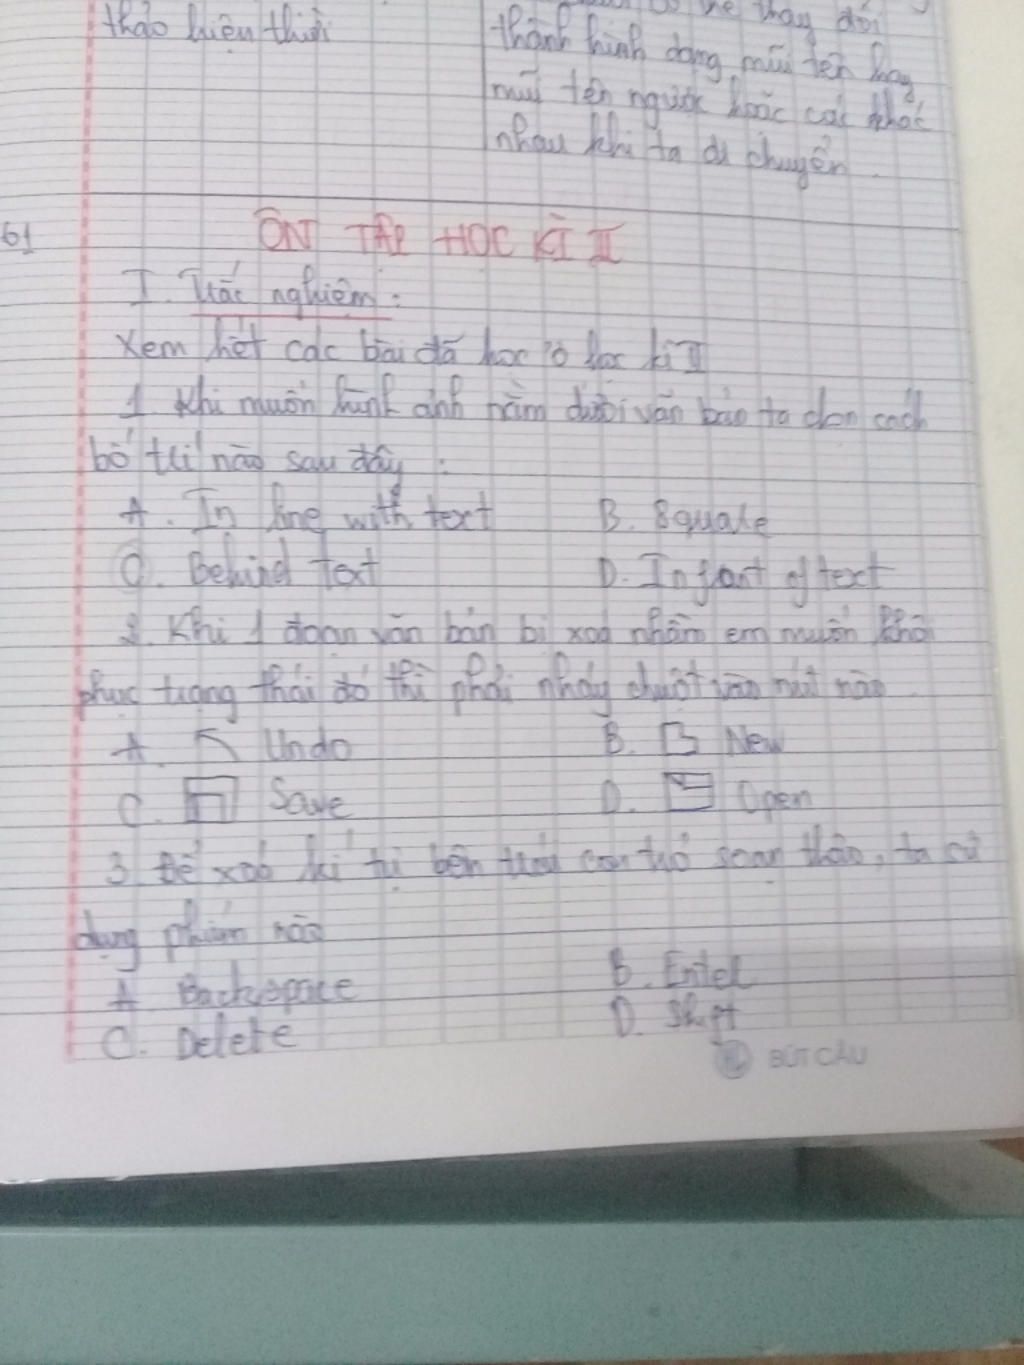 thảo hiện thời
thay đổi
thành hình dạng mũi tên hay
mũi tên ngược hoặc các khác
nhau khi ta di chuyển.
61
ÔN TẬP HỌC KÌ II
I. Trắc nghiệm:
Xem hết các bài đã học ở học kì II
1. Khi muốn hình ảnh nằm dưới văn bản ta chọn cách
bố trí nào sau đây:
A. In line with text B. Square
C. Behind text D. In front of text
2. Khi 1 đoạn văn bản bị xoá nhầm em muốn khôi
phục trạng thái đó thì phải nháy chuột vào nút nào
A. Undo B. New
C. Save D. Open
3. Để xoá kí tự bên trái con trỏ soạn thảo, ta sử
dụng phím nào
A. Backspace B. Enter
C. Delete D. Shift
BÚT CHÂU